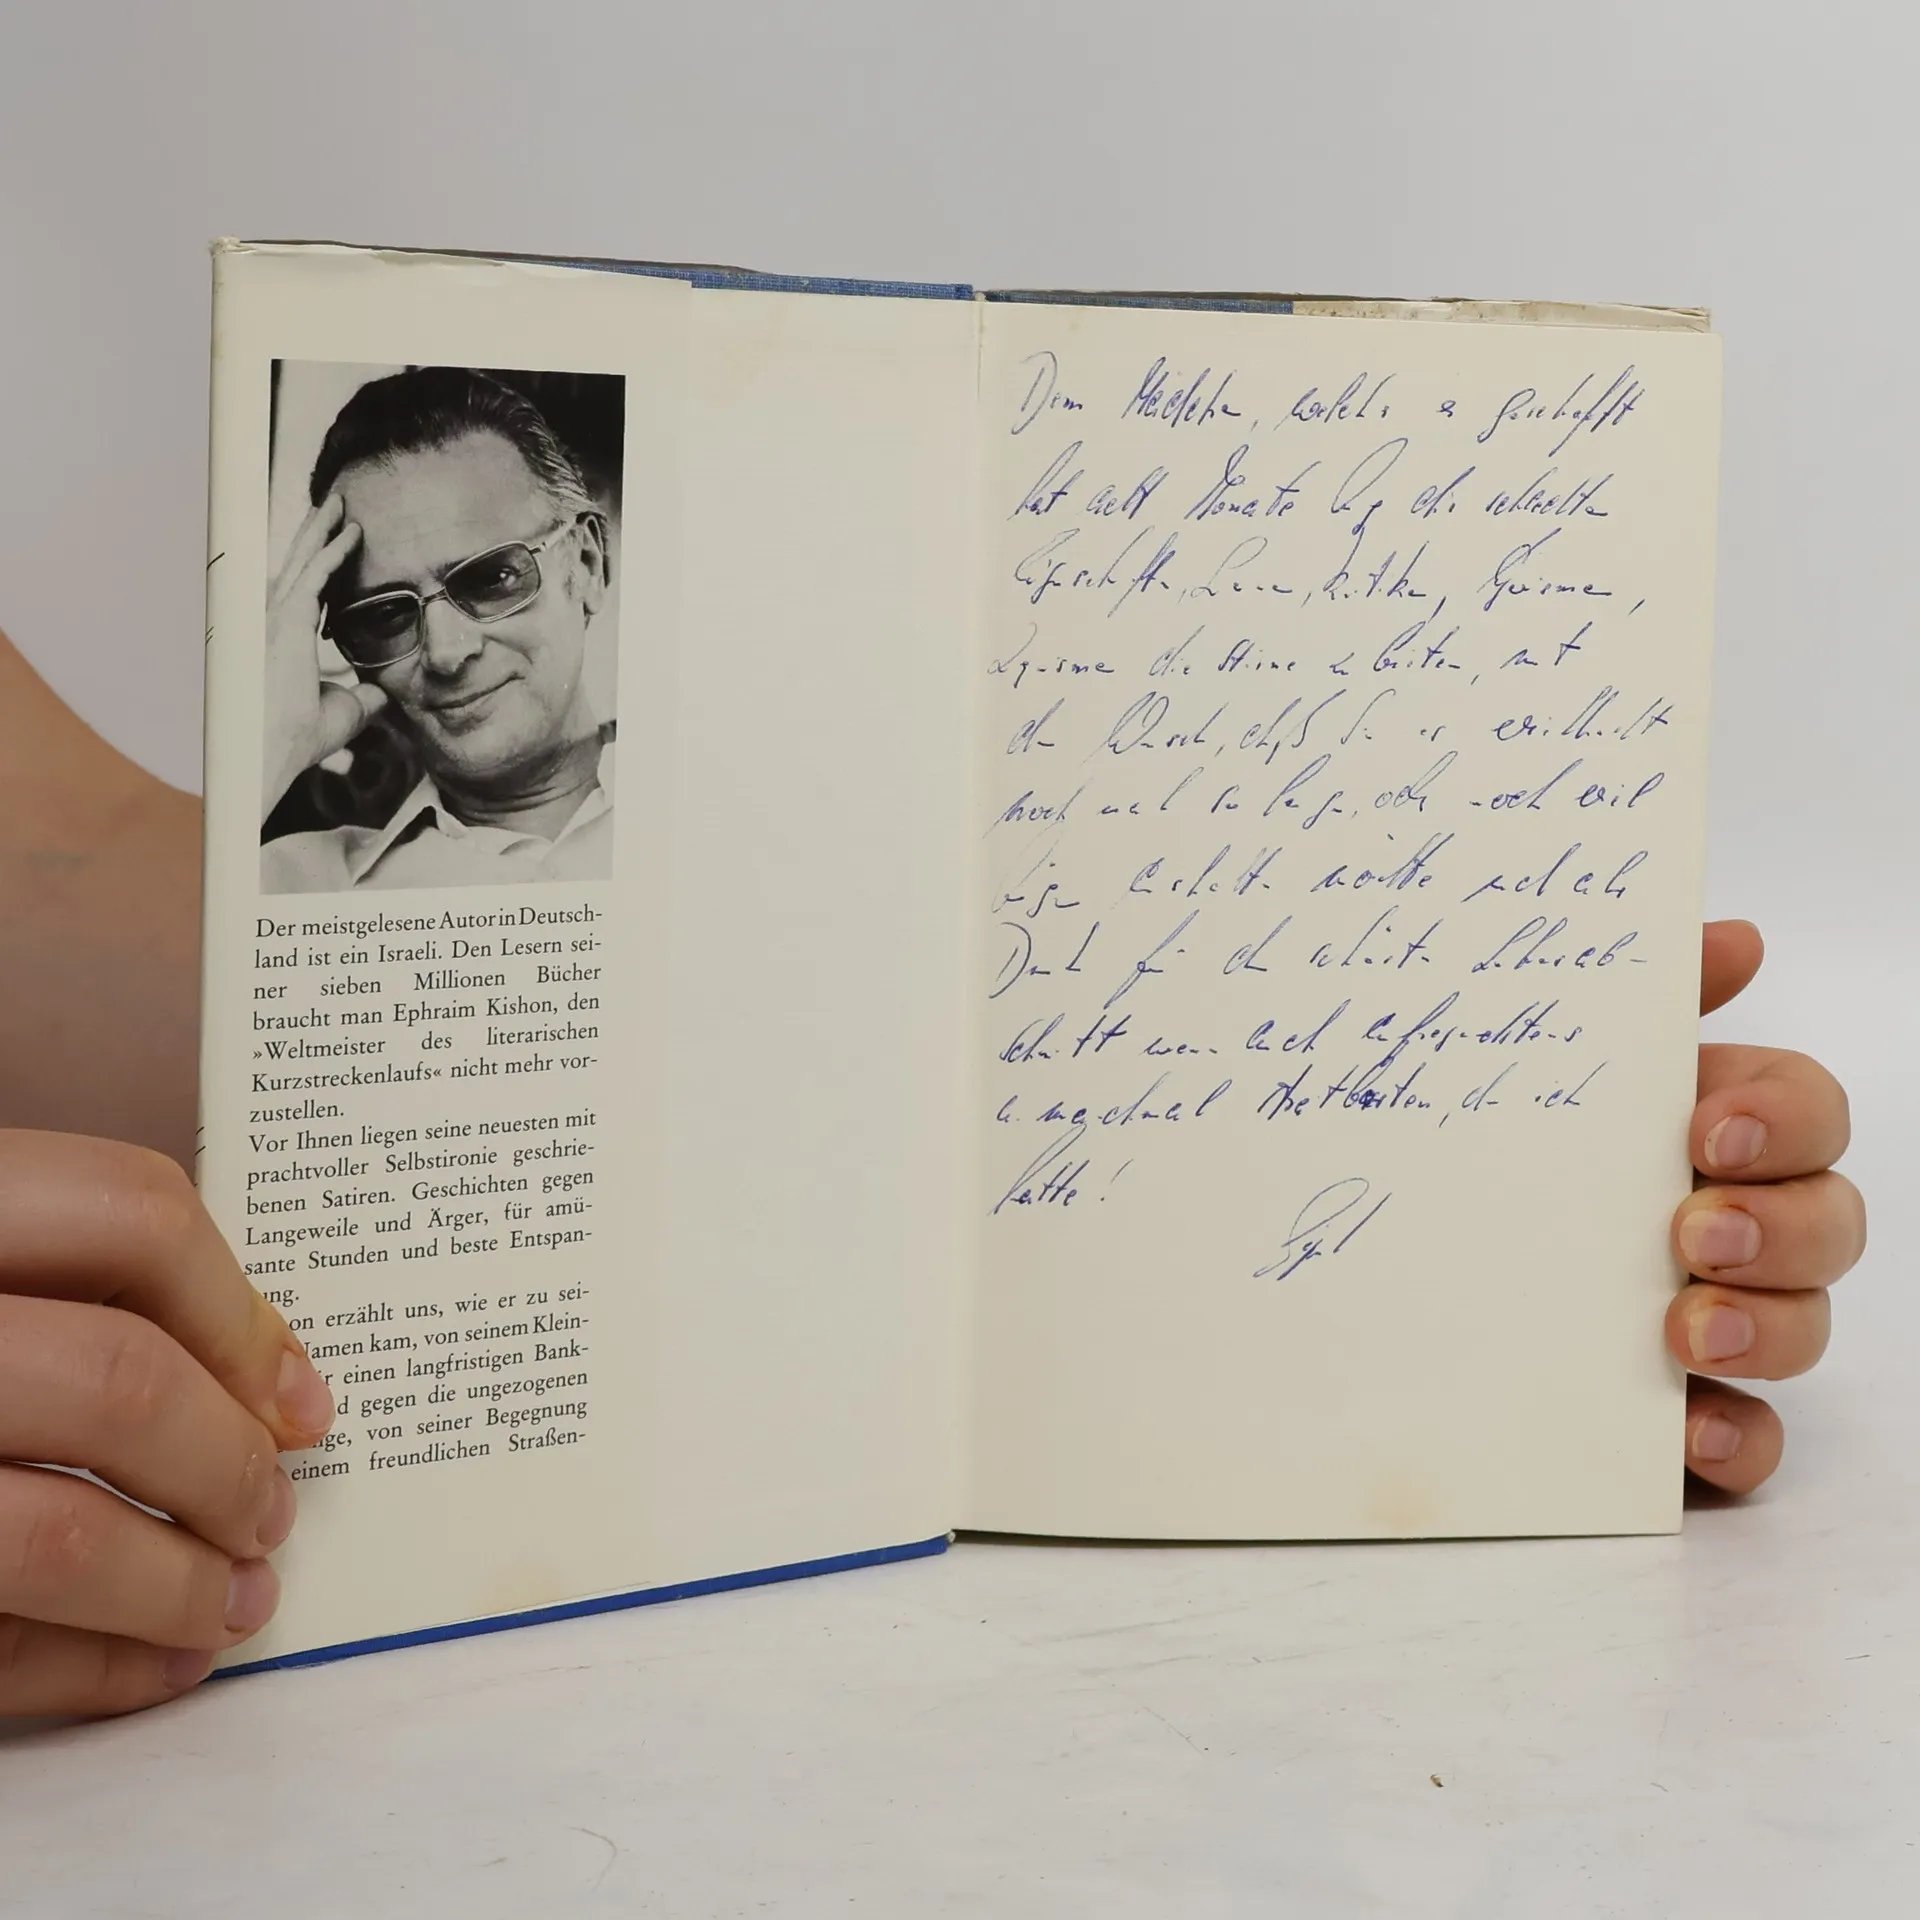 Der meistgelesene Autor in Deutsch-
land ist ein Israeli. Den Lesern sei-
ner sieben Millionen Bücher
braucht man Ephraim Kishon, den
»Weltmeister des literarischen
Kurzstreckenlaufs« nicht mehr vor-
zustellen.
Vor Ihnen liegen seine neuesten mit
prachtvoller Selbstironie geschrie-
benen Satiren. Geschichten gegen
Langeweile und Ärger, für amü-
sante Stunden und beste Entspan-
ung.
on erzählt uns, wie er zu sei-
Namen kam, von seinem Klein-
einen langfristigen Bank-
d gegen die ungezogenen
nge, von seiner Begegnung
einem freundlichen Straßen-
Dem Mädchen, welches es geschafft
hat acht Monate lang die schlechten
Eigenschaften, Launen, Kritiken,
die Stirne zu bieten, mit
den Wunsch, daß Sie es evil.
noch mal so lange, oder noch evil
länger möchte und als
Dank für den schönsten Lebensab-
schnitt wenn auch
manchmal den ich
hatte!